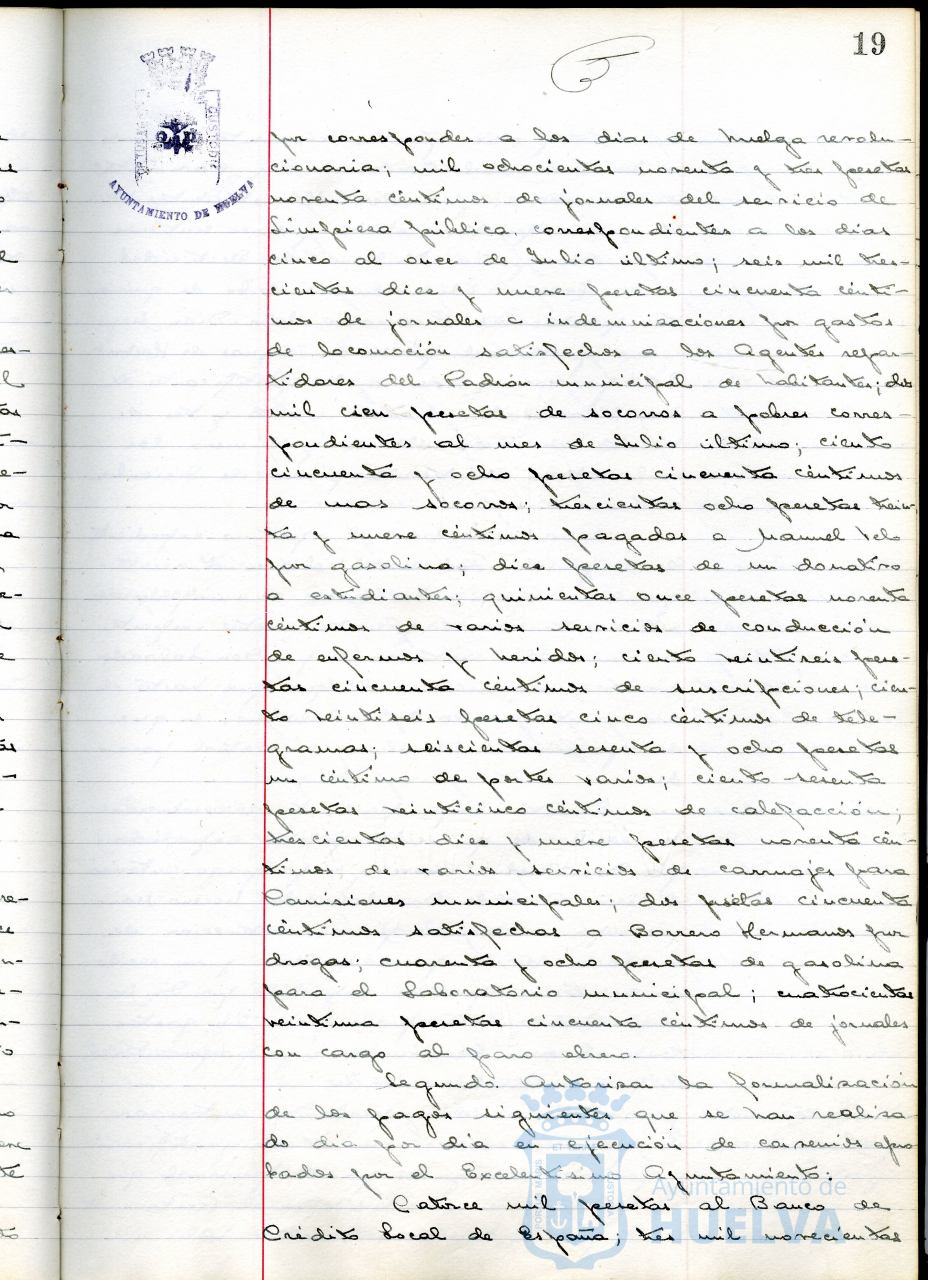 19
AYUNTAMIENTO DE HUELVA
por corresponder a los dias de huelga revolu-
cionaria; mil ochocientas noventa y tres pesetas
noventa céntimos de jornales del servicio de
Limpieza pública, correspondientes a los dias
cinco al once de Julio último; seis mil tres-
cientas diez y nueve pesetas cincuenta cénti-
mos de jornales e indemnizaciones por gastos
de locomoción satisfechos a los Agentes repar-
tidores del Padrón municipal de habitantes; dos
mil cien pesetas de socorros a pobres corres-
pondientes al mes de Julio último; ciento
cincuenta y ocho pesetas cincuenta céntimos
de mas socorros; trescientas ocho pesetas trein-
ta y nueve céntimos pagadas a Manuel Velo
por gasolina; diez pesetas de un donativo
a estudiantes; quinientas once pesetas noventa
céntimos de varios servicios de conducción
de enfermos y heridos; ciento veintiseis pese-
tas cincuenta céntimos de suscripciones; cien-
to veintiseis pesetas cinco céntimos de tele-
gramas; seiscientas sesenta y ocho pesetas
un céntimo de portes varios; ciento sesenta
pesetas veinticinco céntimos de calefacción;
trescientas diez y nueve pesetas noventa cén-
timos de varios servicios de carruajes para
Comisiones municipales; dos psétas cincuenta
céntimos satisfechas a Borrero Hermanos por
drogas; cuarenta y ocho pesetas de gasolina
para el Laboratorio municipal; cuatrocientas
veintiuna pesetas cincuenta céntimos de jornales
con cargo al paro obrero.
Segundo. Autorizar la formalización
de los pagos siguientes que se han realiza-
do dia por dia en ejecución de convenios apro
bados por el Excelentísimo Ayuntamiento:
Catorce mil pesetas al Banco de
Crédito Local de España; tres mil novecientas
Ayuntamiento de
HUELVA